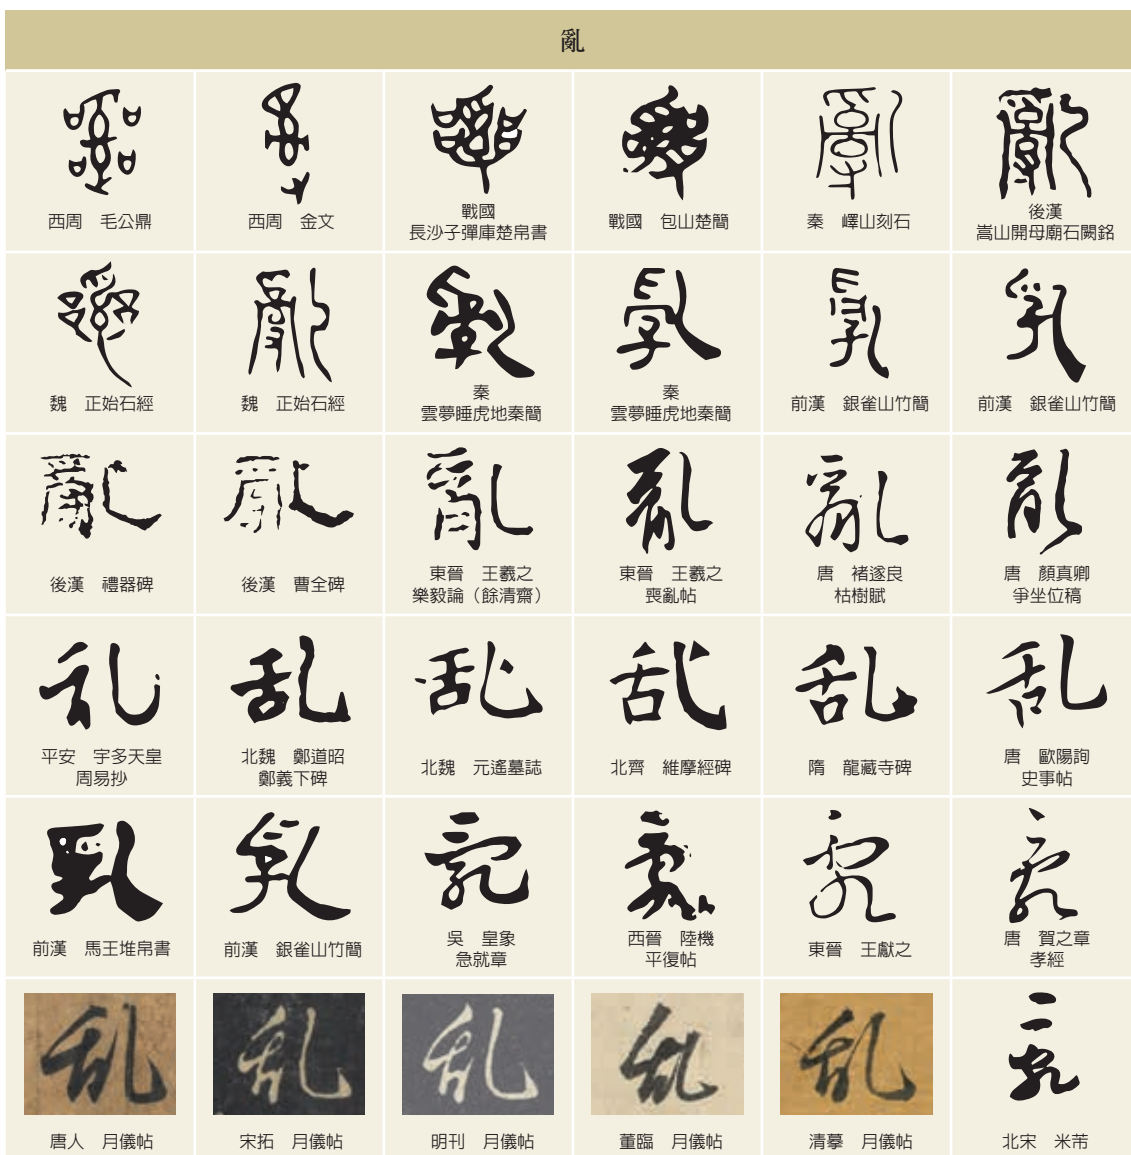 亂
西周　毛公鼎
西周　金文
戰國
長沙子彈庫楚帛書
戰國　包山楚簡
秦　嶧山刻石
後漢
嵩山開母廟石闕銘
魏　正始石經
魏　正始石經
秦
雲夢睡虎地秦簡
秦
雲夢睡虎地秦簡
前漢　銀雀山竹簡
前漢　銀雀山竹簡
後漢　禮器碑
後漢　曹全碑
東晉　王羲之
樂毅論（餘清齋）
東晉　王羲之
喪亂帖
唐　褚遂良
枯樹賦
唐　顏真卿
爭坐位稿
平安　宇多天皇
周易抄
北魏　鄭道昭
鄭義下碑
北魏　元遙墓誌
北齊　維摩經碑
隋　龍藏寺碑
唐　歐陽詢
史事帖
前漢　馬王堆帛書
前漢　銀雀山竹簡
吳　皇象
急就章
西晉　陸機
平復帖
東晉　王獻之
唐　賀之章
孝經
唐人　月儀帖
宋拓　月儀帖
明刊　月儀帖
董臨　月儀帖
清摹　月儀帖
北宋　米芾